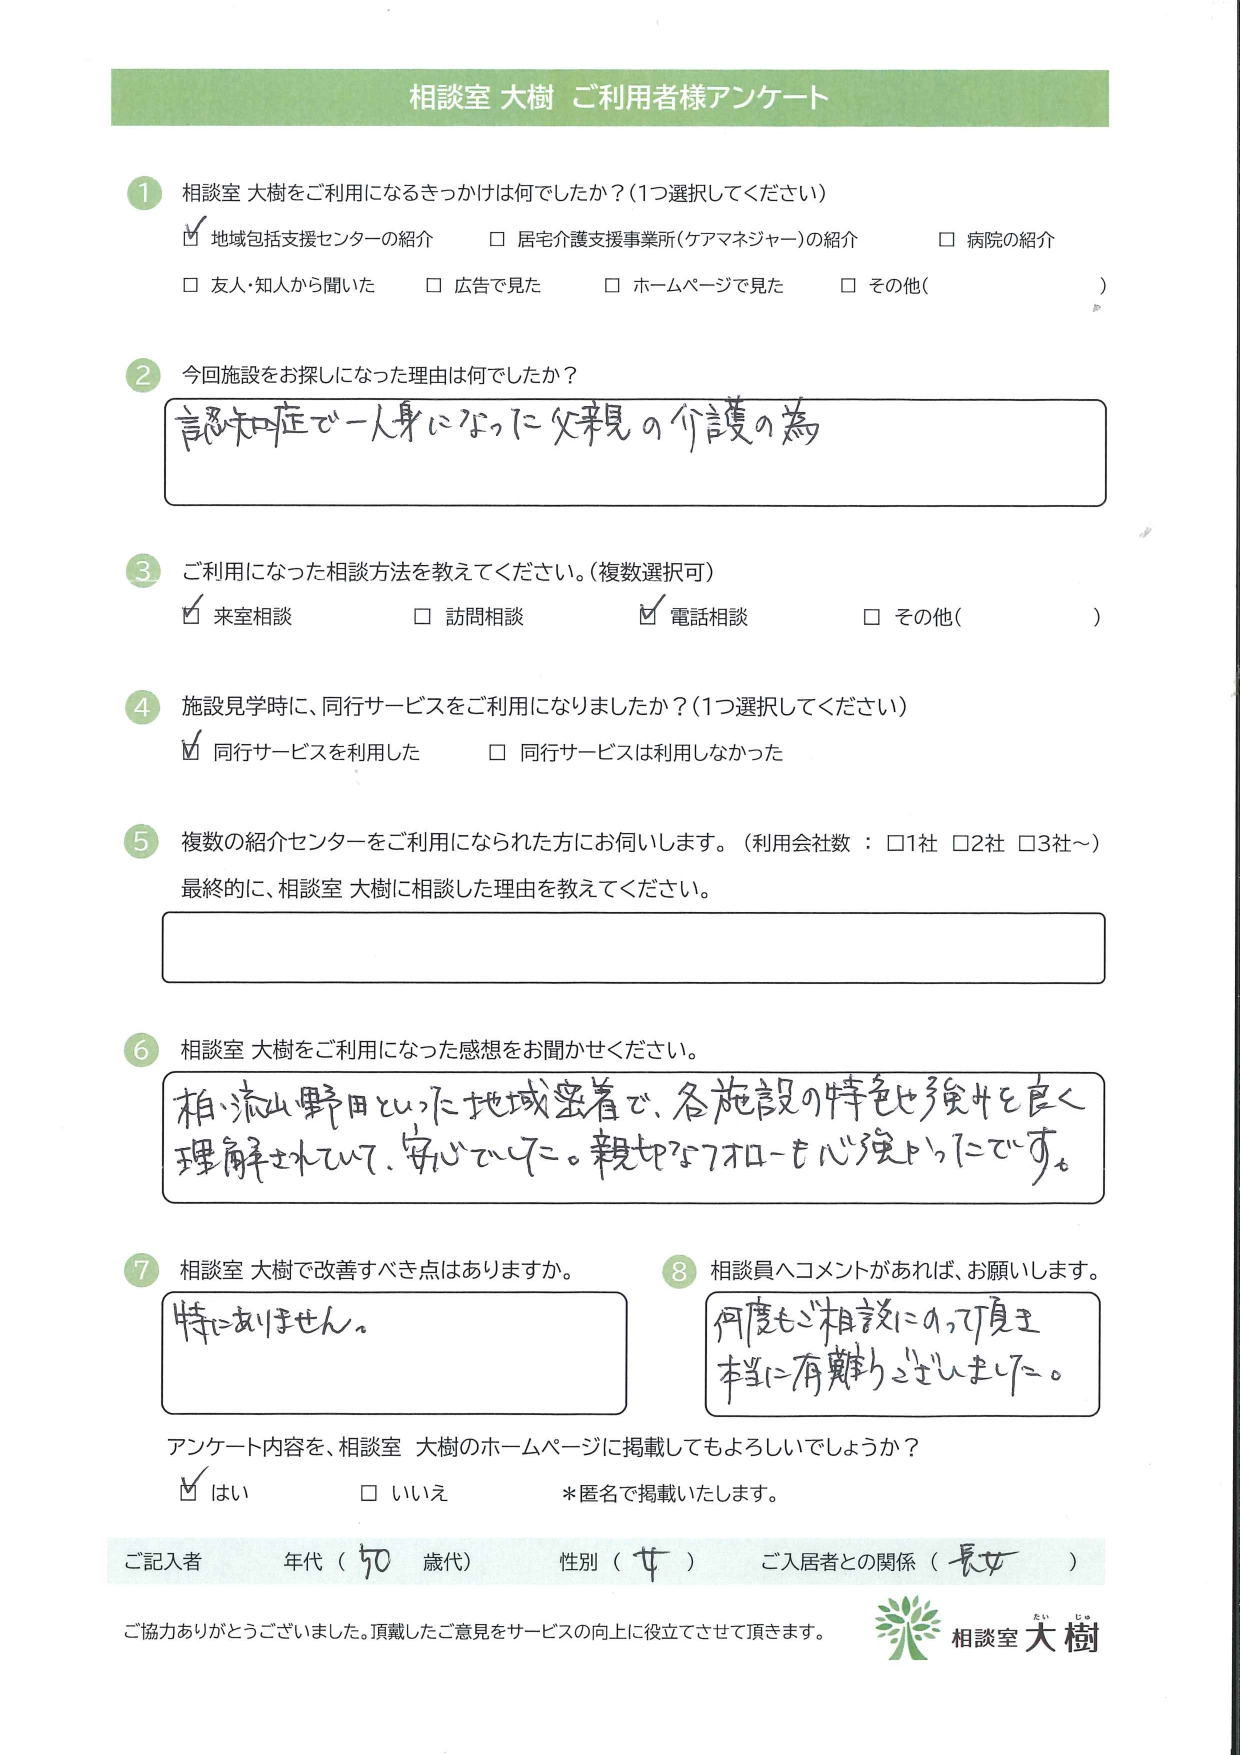 相談室 大樹 ご利用者様アンケート
1 相談室 大樹をご利用になるきっかけは何でしたか？(1つ選択してください)
☑ 地域包括支援センターの紹介 □ 居宅介護支援事業所(ケアマネジャー)の紹介 □ 病院の紹介
□ 友人・知人から聞いた □ 広告で見た □ ホームページで見た □ その他( )
2 今回施設をお探しになった理由は何でしたか？
認知症で一人身になった父親の介護の為
3 ご利用になった相談方法を教えてください。(複数選択可)
☑ 来室相談 □ 訪問相談 ☑ 電話相談 □ その他( )
4 施設見学時に、同行サービスをご利用になりましたか？(1つ選択してください)
☑ 同行サービスを利用した □ 同行サービスは利用しなかった
5 複数の紹介センターをご利用になられた方にお伺いします。(利用会社数 ： □1社 □2社 □3社～)
最終的に、相談室 大樹に相談した理由を教えてください。
6 相談室 大樹をご利用になった感想をお聞かせください。
柏、流山、野田といった地域密着で、各施設の特色や強みを良く
理解されていて、安心でした。親切なフォローも心強かったです。
7 相談室 大樹で改善すべき点はありますか。
特にありません。
8 相談員へコメントがあれば、お願いします。
何度もご相談にのって頂き
本当に有難うございました。
アンケート内容を、相談室 大樹のホームページに掲載してもよろしいでしょうか？
☑ はい □ いいえ ＊匿名で掲載いたします。
ご記入者 年代 ( 50 歳代) 性別 ( 女 ) ご入居者との関係 ( 長女 )
ご協力ありがとうございました。頂戴したご意見をサービスの向上に役立てさせて頂きます。
たい じゅ
相談室 大樹